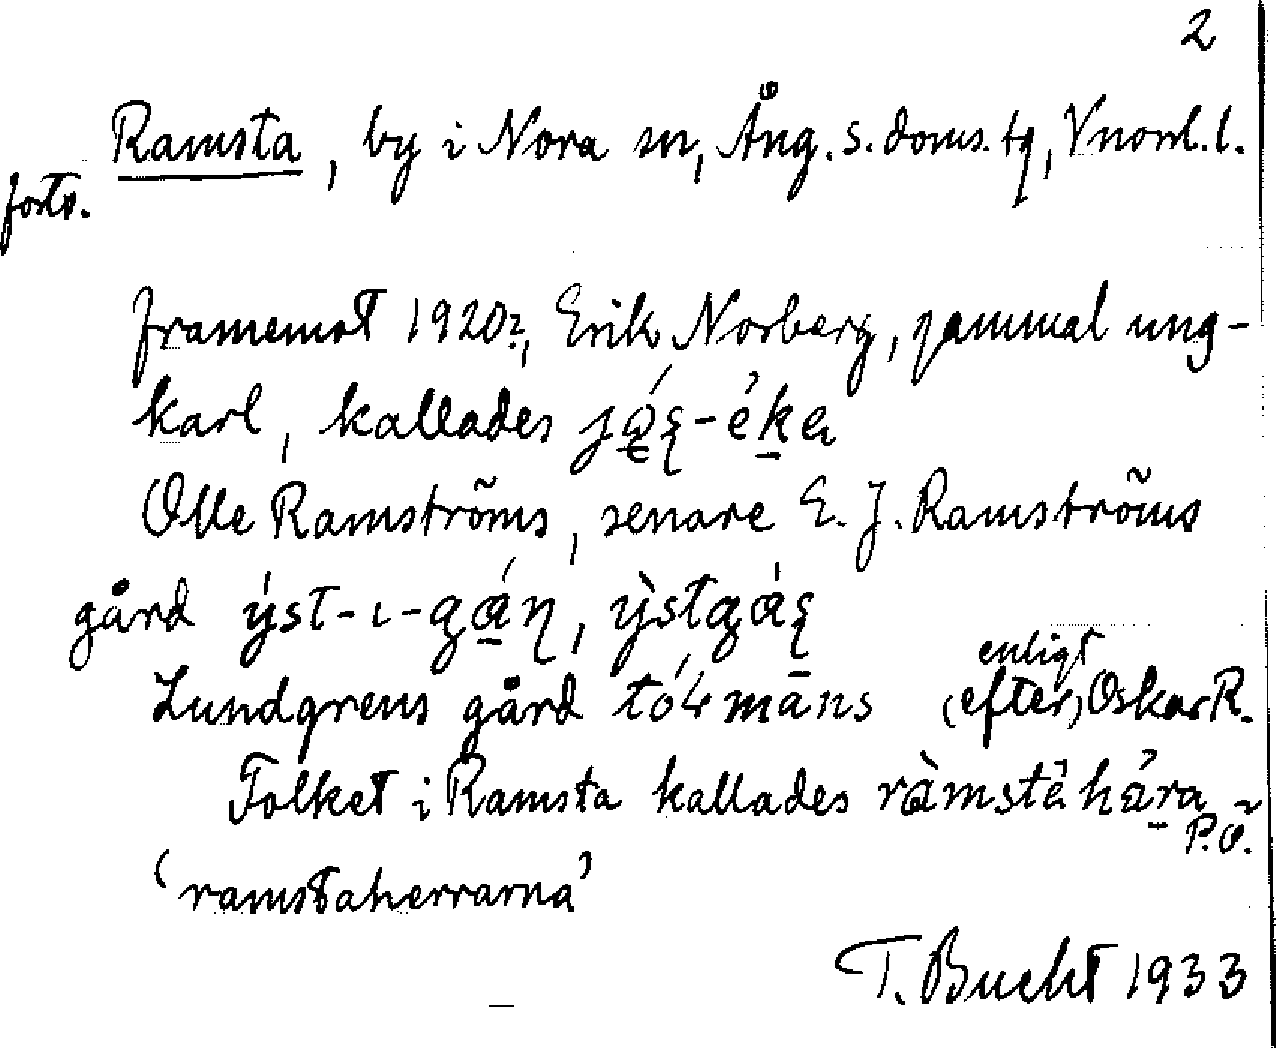 2
Ramsta, by i Nora sn, Ång. s. doms. tg, Vnorrl. l.
forts.
framemot 1920?, Erik Norberg, gammal ung-
karl, kallades
Olle Ramströms, senare E. J. Ramströms
gård ýst-ı-gáṇ, ỳstgáş
enligt
Lundgrens gård (efter) Oskar R.
Folket i Ramsta kallades ràmstêhára
P.Ö.
'ramstaherrarna'
T. Bucht 1933